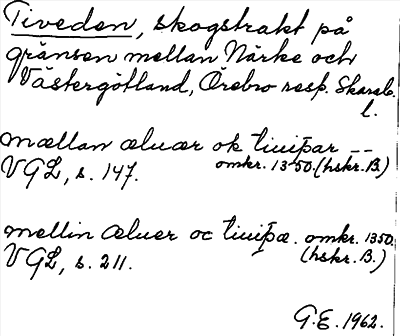 Tiveden, skogstrakt på
gränsen mellan Närke och
Västergötland, Örebro resp. Skarab.
l.
mællan æluær ok tiuiþar --
VGL, s. 147. omkr. 1350. (hskr. B.)
mellin æluer oc tiuiþæ. omkr. 1350.
VGL, s. 211. (hskr. B.)
G.E. 1962.